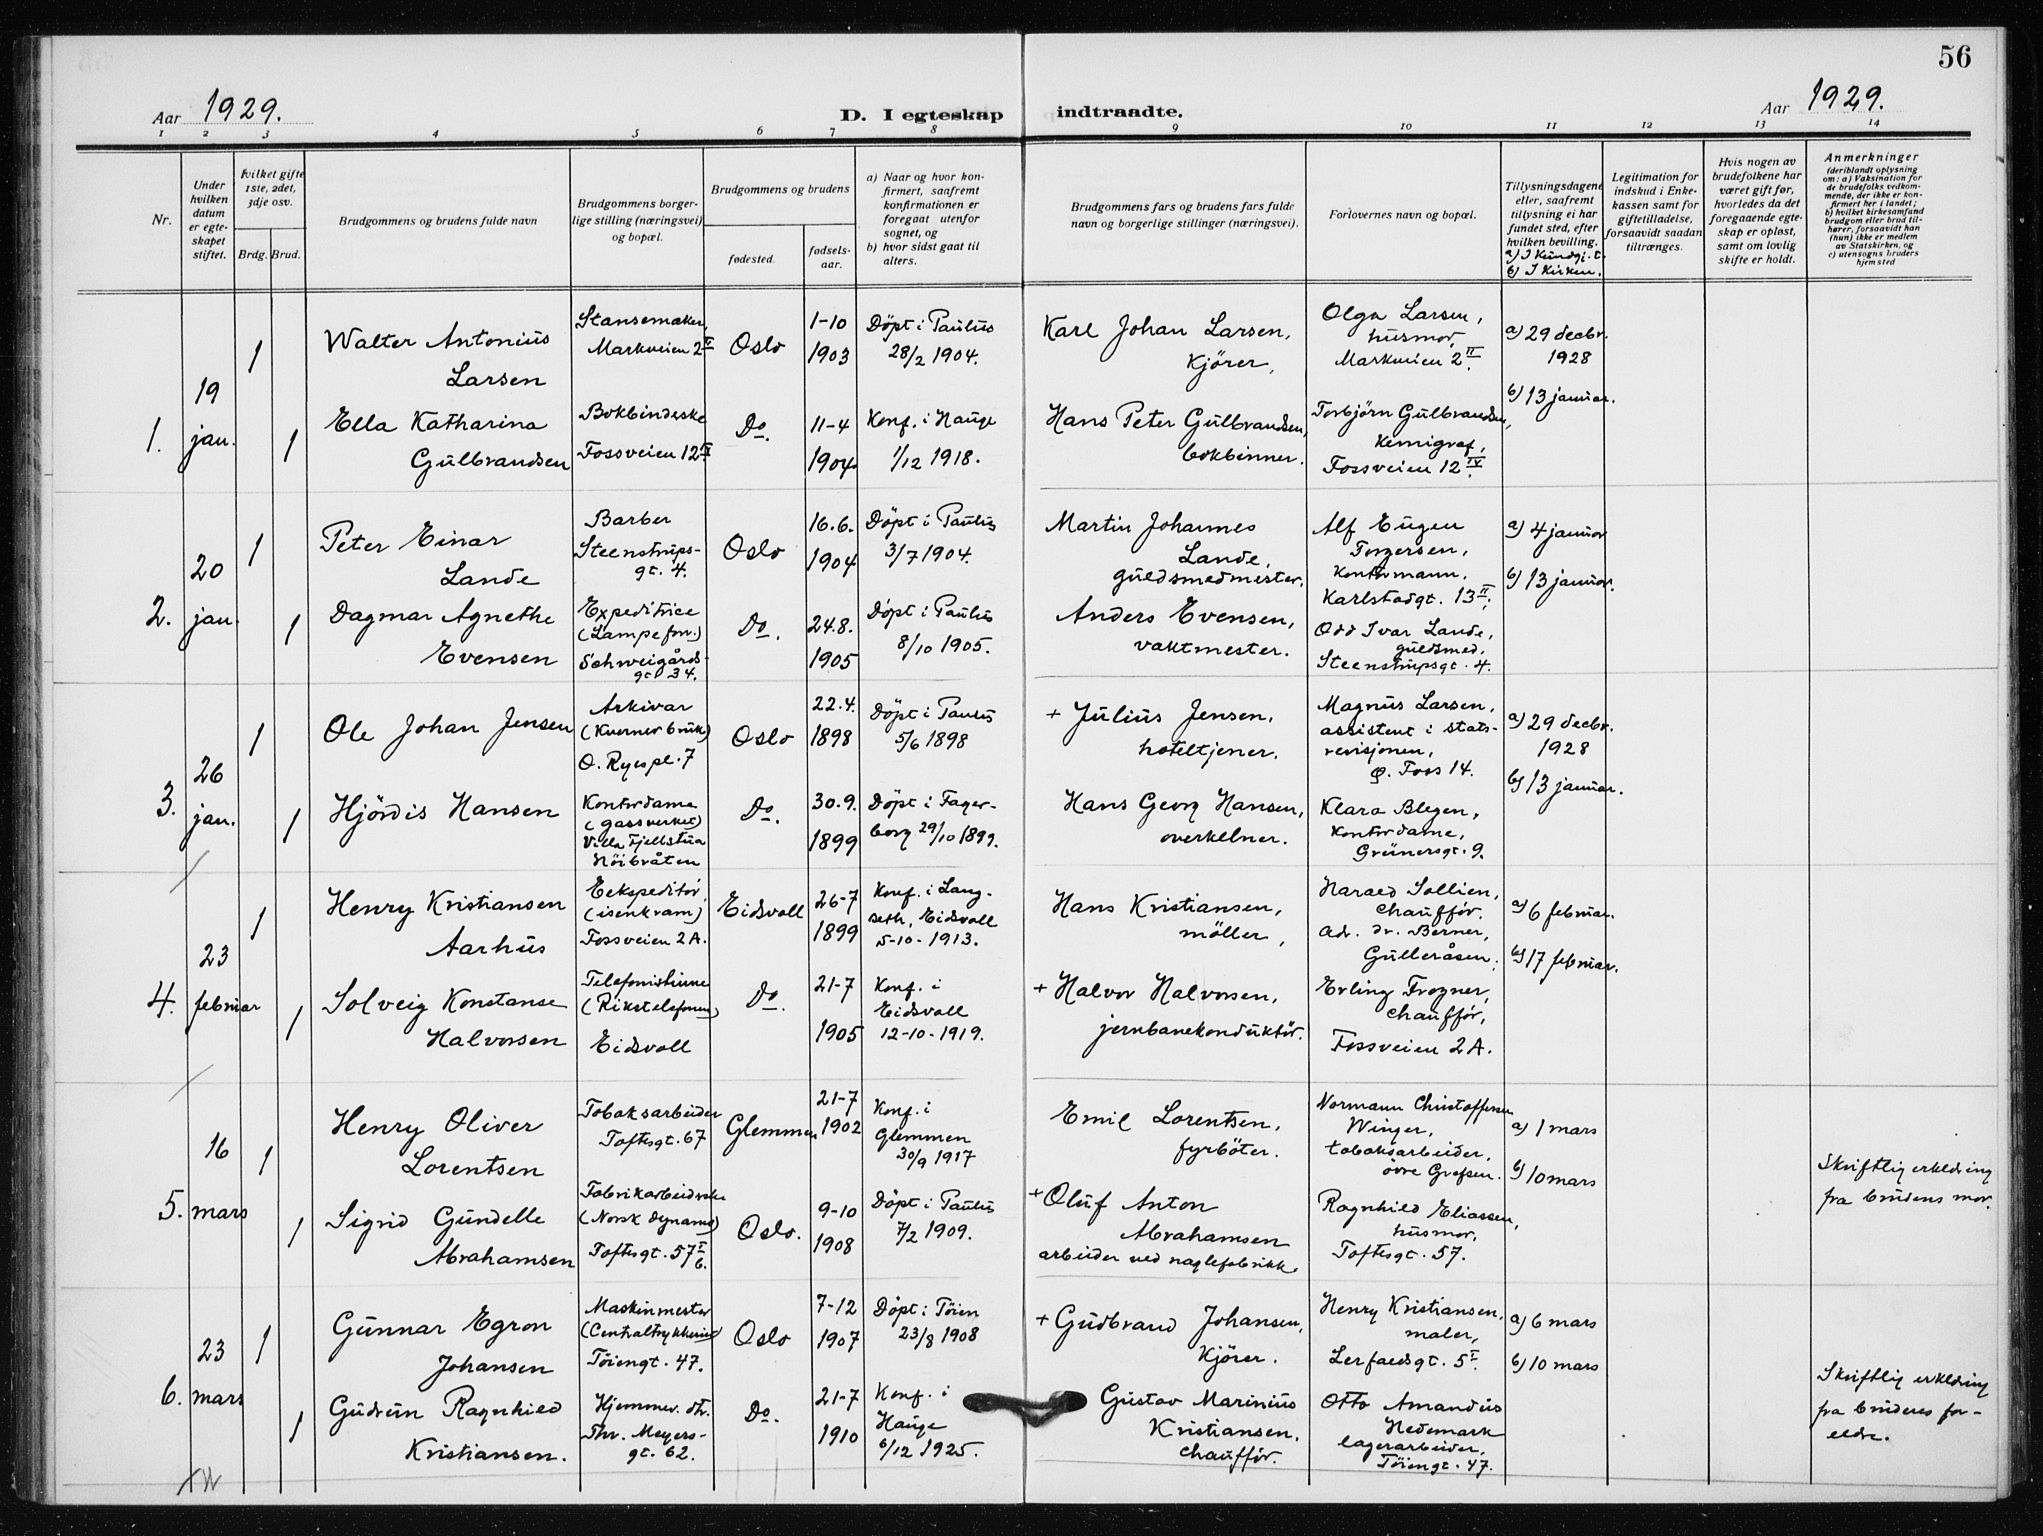 56
Aar 1929. D. I egteskap indtraadte. Aar 1929.
1 2 3 4 5 6 7 8 9 10 11 12 13 14
Nr.
Under
hvilken
datum
er egte-
skapet
stiftet.
Hvilket gifte
1ste, 2det,
3dje osv.
Brdg. Brud.
Brudgommens og brudens fulde navn
Brudgommens borger-
lige stilling (næringsvei)
og bopæl.
Brudgommens og brudens
fødested.
fødsels-
aar.
a) Naar og hvor kon-
firmert, saafremt
konfirmationen er
foregaat utenfor
sognet, og
b) hvor sidst gaat til
alters.
Brudgommens fars og brudens fars fulde
navn og borgerlige stillinger (næringsvei).
Forlovernes navn og bopæl.
Tillysningsdagene
eller, saafremt
tillysning ei har
fundet sted, efter
hvilken bevilling.
a) I Kundgj. t.
b) I Kirken.
Legitimation for
indskud i Enke-
kassen samt for
giftetilladelse,
forsaavidt saadan
tiltrænges.
Hvis nogen av
brudefolkene har
været gift før,
hvorledes da det
foregaaende egte-
skap er opløst,
samt om lovlig
skifte er holdt.
Anmerkninger
(deriblandt oplysning
om: a) Vaksination for
de brudefolks vedkom-
mende, der ikke er kon-
firmert her i landet;
b) hvilket kirkesamfund
brudgom eller brud til-
hører, forsaavidt han
(hun) ikke er medlem
av Statskirken, og
c) utensogns bruders
hjemsted
1.
19
jan.
1
Walter Antonius
Larsen
Stansemaker,
Markveien 2 II
Oslo
1-10
1903
Døpt i Paulus
28/2 1904.
Karl Johan Larsen,
Kjører,
Olga Larsen,
husmor,
Markveien 2 II.
a) 29 decbr.
1928
b) 13 januar.
1
Ella Katharina
Gulbrandsen
Bokbinderske
Fossveien 12 IV
Do.
11-4
1904
Konf. i Hauge
1/12 1918.
Hans Peter Gulbrandsen,
bokbinner.
Torbjørn Gulbrandsen,
Kemigraf,
Fossveien 12 IV.
2.
20
jan.
1
Peter Einar
Lande
Barber
Steenstrups-
gt. 4.
Oslo
16.6.
1904
Døpt i Paulus
3/7 1904.
Martin Johannes
Lande,
guldsmedmester.
Alf Eugen
Torgersen,
Kontormann,
Karlstadgt. 13 II;
a) 4 januar
b) 13 januar.
1
Dagmar Agnethe
Evensen
Expeditrice
(Lampeforr.)
Schweigårds-
gt 34.
Do.
24.8.
1905
Døpt i Paulus
8/10 1905.
Anders Evensen,
vaktmester.
Odd Ivar Lande,
guldsmed,
Steenstrupsgt. 4.
3.
26
jan.
1
Ole Johan Jensen
Arkivar
(Kværner bruk)
O. Ryes pl. 7
Oslo
22.4.
1898
Døpt i Paulus
5/6 1898
+ Julius Jensen,
hoteltjener.
Magnus Larsen,
assistent i stats-
revisjonen,
Ø. Foss 14.
a) 29 decbr.
1928
b) 13 januar.
1
Hjördis Hansen
Kontordame
(gassverket)
Villa Fjellstua
Höibråten
Do.
30.9.
1899
Døpt i Fager-
borg 29/10 1899.
Hans Georg Hansen,
overkelner.
Klara Blegen,
Kontordame,
Grünersgt. 9.
4.
23
februar
1
Henry Kristiansen
Aarhus
Eekspeditör,
(isenkram)
Fossveien 2 A.
Eidsvoll
26-7
1899
Konf. i Lang-
seth, Eidsvoll
5-10-1913.
Hans Kristiansen,
möller,
Harald Sollien,
chaufför.
adr. dr. Berner,
Gulleråsen;
a) 6 februar.
b) 17 februar.
1
Solveig Konstanse
Halvorsen
Telefonistinne
(Rikstelefonen)
Eidsvoll
Do.
21-7
1905
Konf. i
Eidsvoll
12-10-1919.
+ Halvor Halvorsen,
jernbanekonduktör.
Erling Frogner,
chaufför,
Fossveien 2 A.
5.
16
mars
1
Henry Oliver
Lorentsen
Tobaksarbeider
Toftesgt. 67
Glemmen
21-7
1902
Konf. i
Glemmen
30/9 1917
Emil Lorentsen,
fyrböter.
Normann Christoffersen
Winger,
tobaksarbeider,
övre Grefsen.
a) 1 mars
b) 10 mars
1
Sigrid Gundelle
Abrahamsen
Fabrikarbeiderske
(Norsk dynamo)
Toftesgt. 57 I
b.
Oslo.
9-10
1908
Døpt i Paulus
7/2 1909.
+ Oluf Anton
Abrahamsen
arbeider ved naglefabrikk.
Ragnhild Eliassen,
husmor,
Toftesgt. 57.
Skriftlig erklæring
fra brudens mor.
6.
23
mars
1
Gunnar Egron
Johansen
Maskinmester
(Centraltrykkeriet)
Töiengt. 47.
Oslo
7-12
1907
Døpt i Töien
23/8 1908
+ Gudbrand Johansen,
Kjörer.
Henry Kristiansen,
maler,
Lerfaldsgt. 5 I.
a) 6 mars
b) 10 mars
1
Gudrun Ragnhild
Kristiansen.
Hjemmev. dtr.
Thv. Meyers-
gt. 62.
Do.
21-7
1910
Konf. i
Hauge
6/12 1925.
Gustav Marinius
Kristiansen,
chaufför.
Otto Amandus
Hedemark
lagerarbeider,
Töiengt. 47.
Skriftlig erklæring
fra brudens for-
eldre.